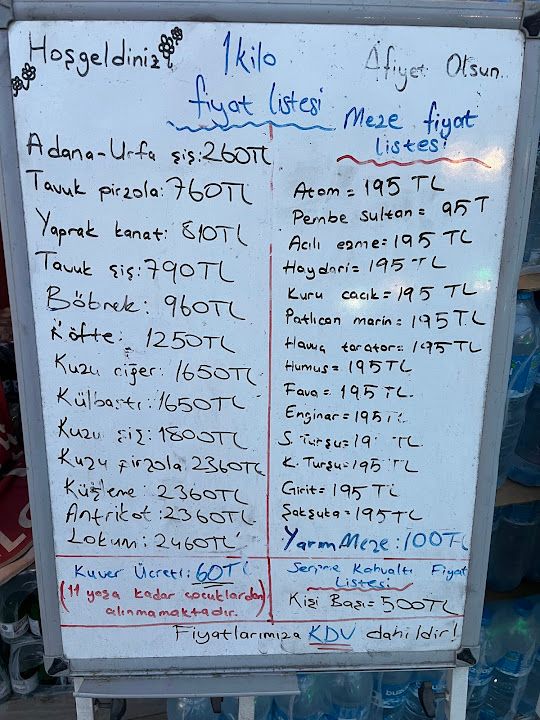 Hoşgeldiniz
1kilo
fiyat listesi
Afiyet Olsun
Adana-Urfa şiş: 260TL
Tavuk pirzola: 760TL
Yaprak kanat: 810TL
Tavuk şiş: 790TL
Böbrek: 960TL
Köfte: 1250TL
Kuzu ciğer: 1650TL
Külbastı: 1650TL
Kuzu şiş: 1800TL
Kuzu pirzola: 2360TL
Küşleme: 2360TL
Antrikot: 2360TL
Lokum: 2460TL
Kuver Ücreti: 60TL
(11 yaşa kadar çocuklardan
alınmamaktadır.)
Meze fiyat
listesi
Atom = 195 TL
Pembe sultan = 95 T
Acılı ezme = 195 TL
Haydari = 195 TL
Kuru cacık = 195 TL
Patlıcan marin = 195 TL
Havuç tarator = 195 TL
Humus = 195 TL
Fava = 195 TL
Enginar = 195 TL
S. Turşu = 19 TL
K. Turşu = 195 TL
Girit = 195 TL
Şakşuka = 195 TL
Yarım Meze: 100TL
Serpme Kahvaltı Fiyat
Listesi
Kişi Başı = 500TL
Fiyatlarımıza KDV dahildir!